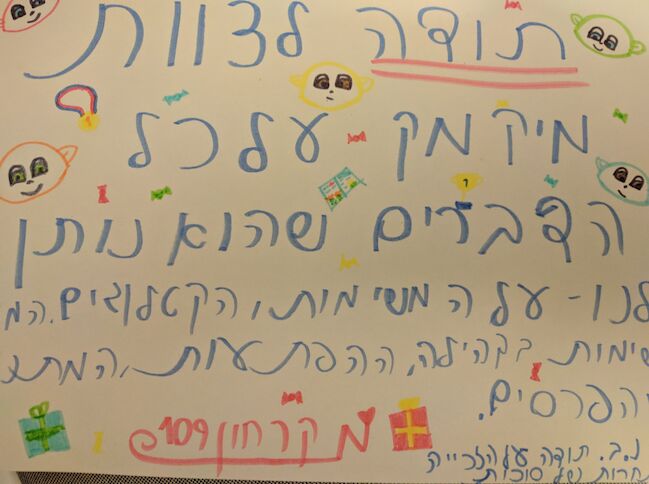 תודה לצוות
מיקמק על כל
הדברים שהוא נותן
לנו - על המשימות, הקטלוגים. המ
שימות בקהילה, ההפתעות, המתנ
והפרסים.
מקרחון109
נ.ב. תודה על הזכייה
תחרות של סוכות